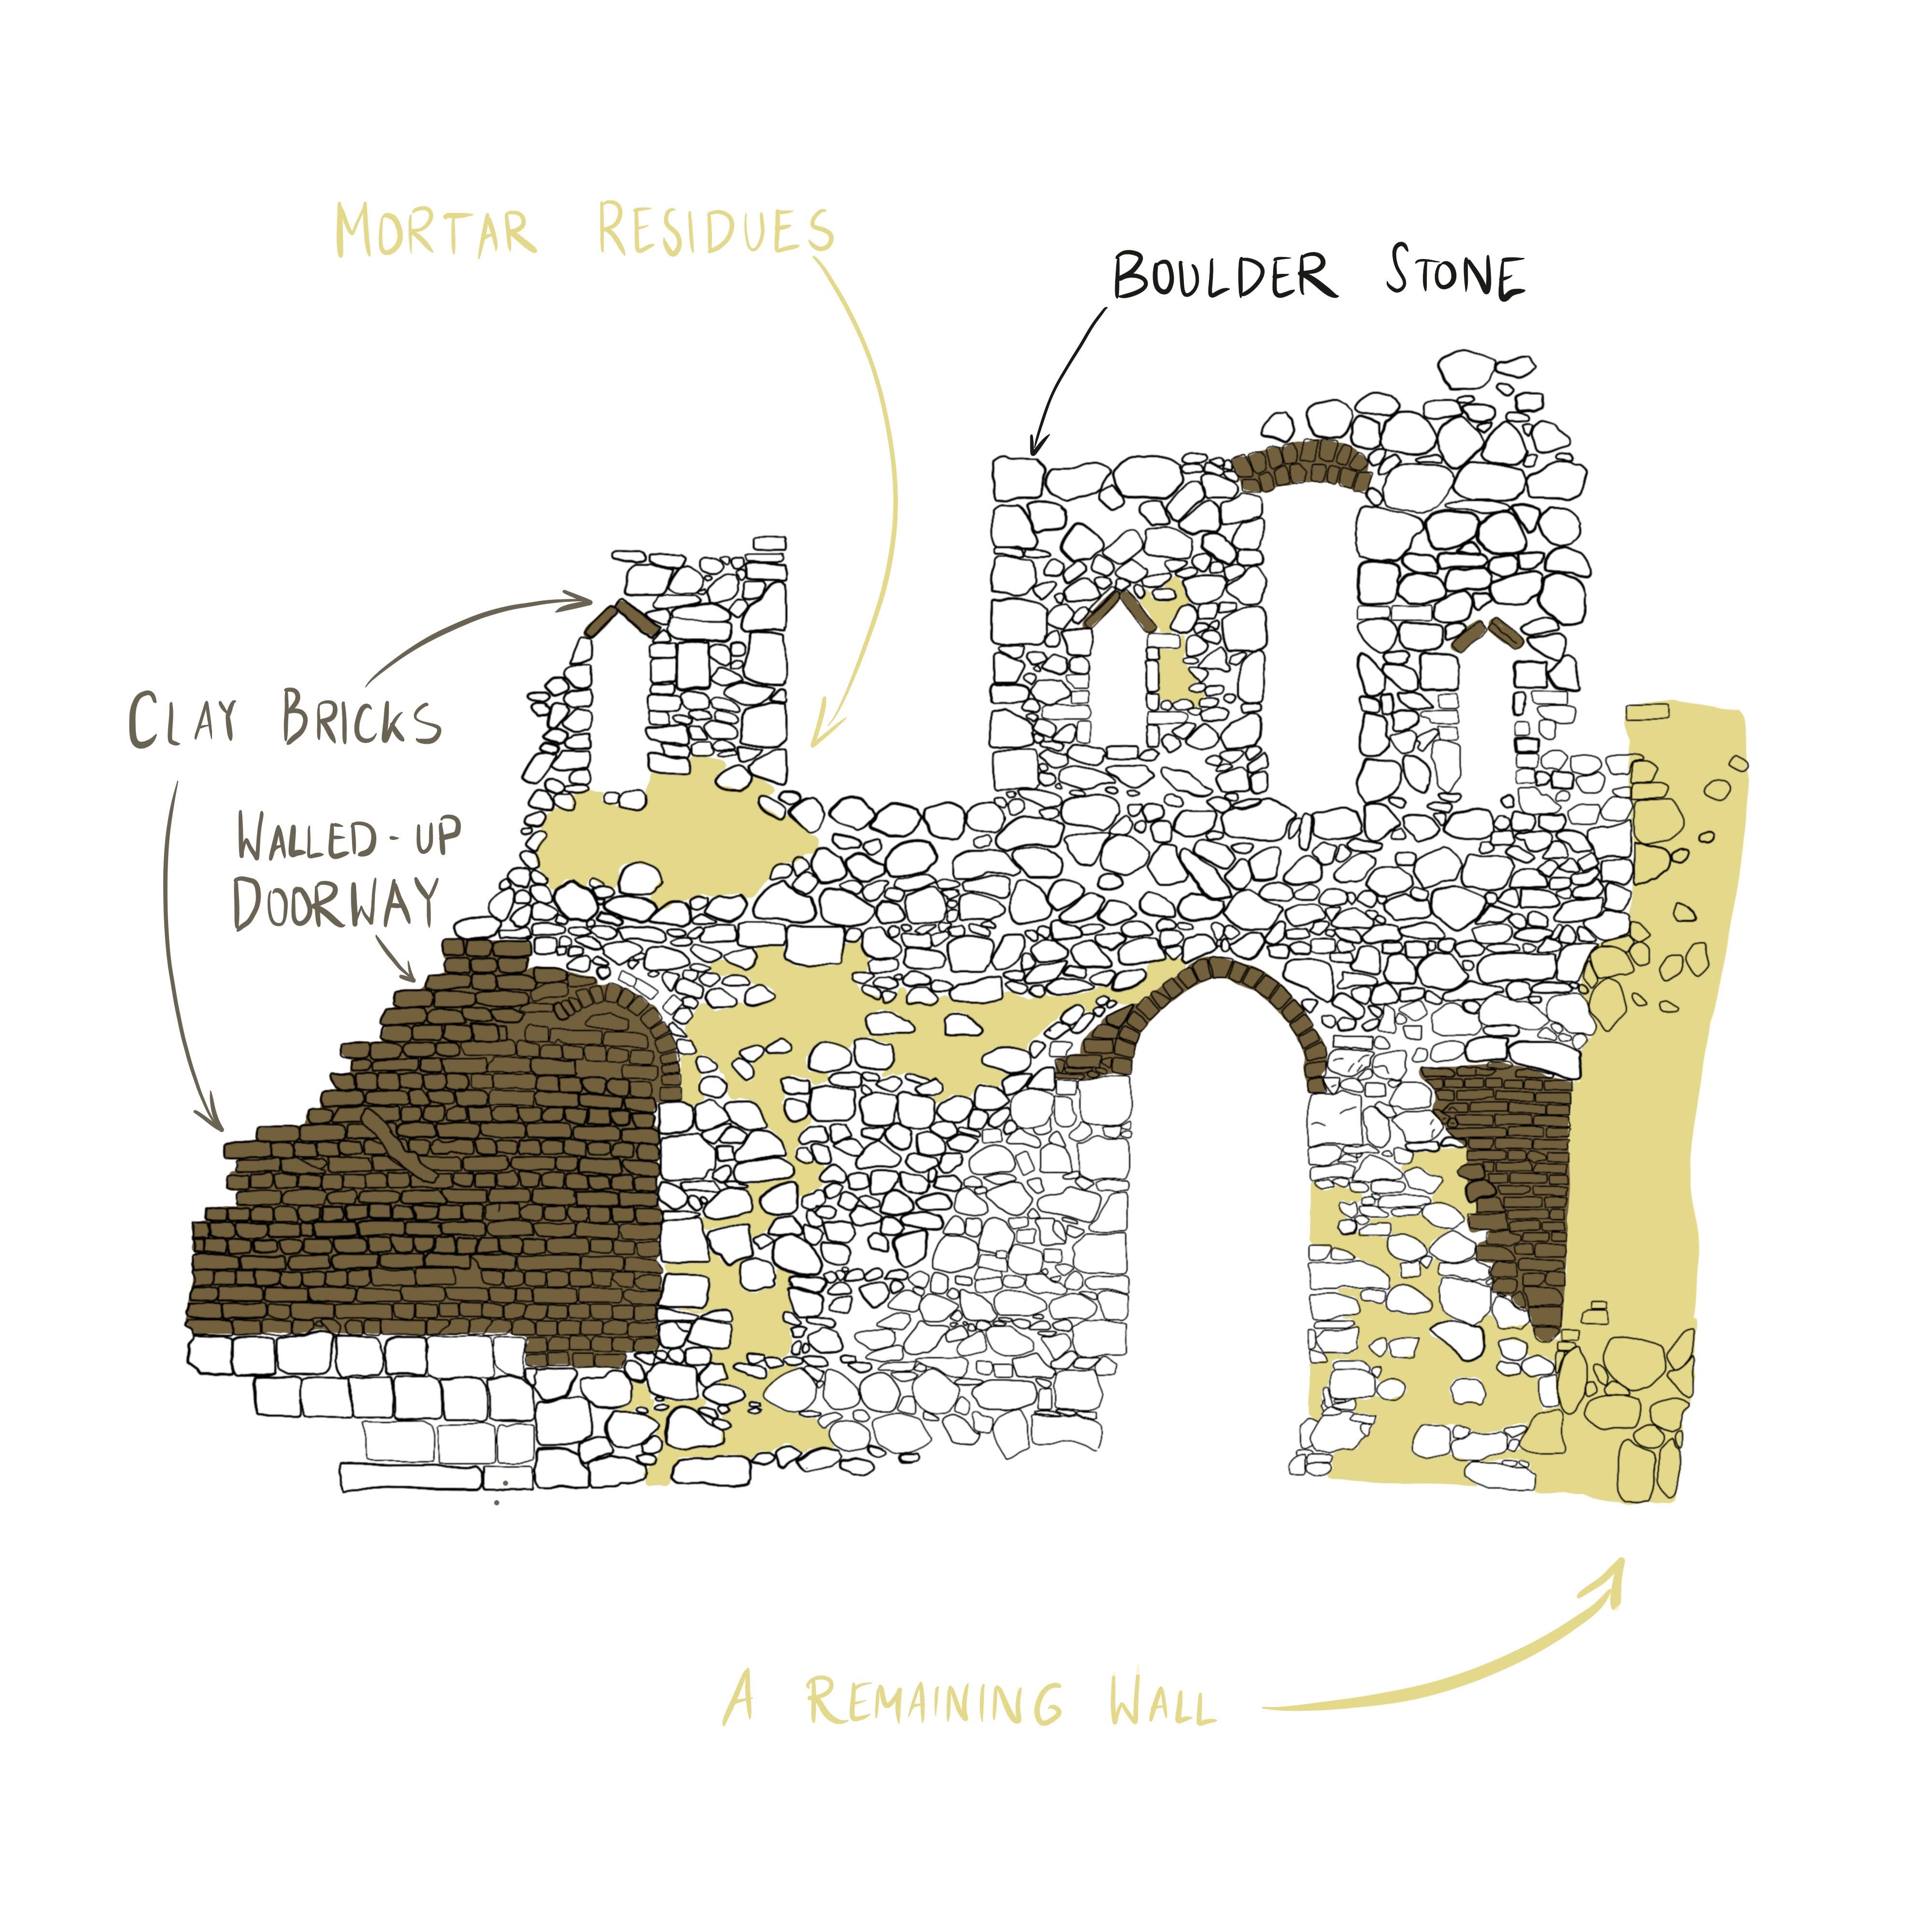 MORTAR RESIDUES
BOULDER STONE
CLAY BRICKS
WALLED-UP
DOORWAY
A REMAINING WALL